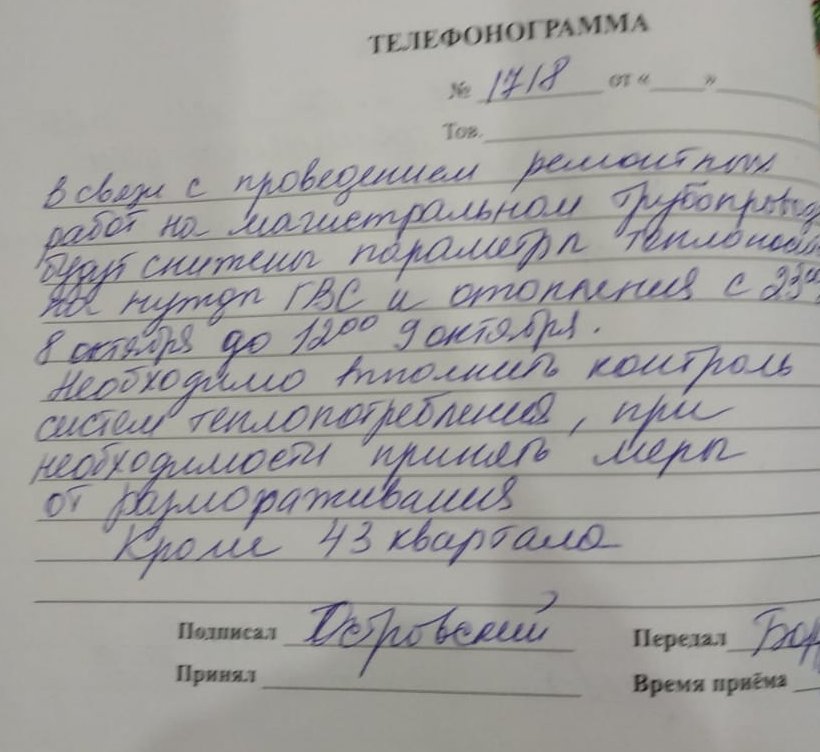 ТЕЛЕФОНОГРАММА
№ 1718 от « »
Тов.
В связи с проведением ремонтных
работ на магистральном трубопровод
будут снижены параметры теплоноси
на нужды ГВС и отопления с 23⁰⁰
8 октября до 12⁰⁰ 9 октября.
Необходимо выполнить контроль
систем теплопотребления, при
необходимости принять меры
от размораживания
Кроме 43 квартала
Подписал Островский Передал
Принял Время приёма